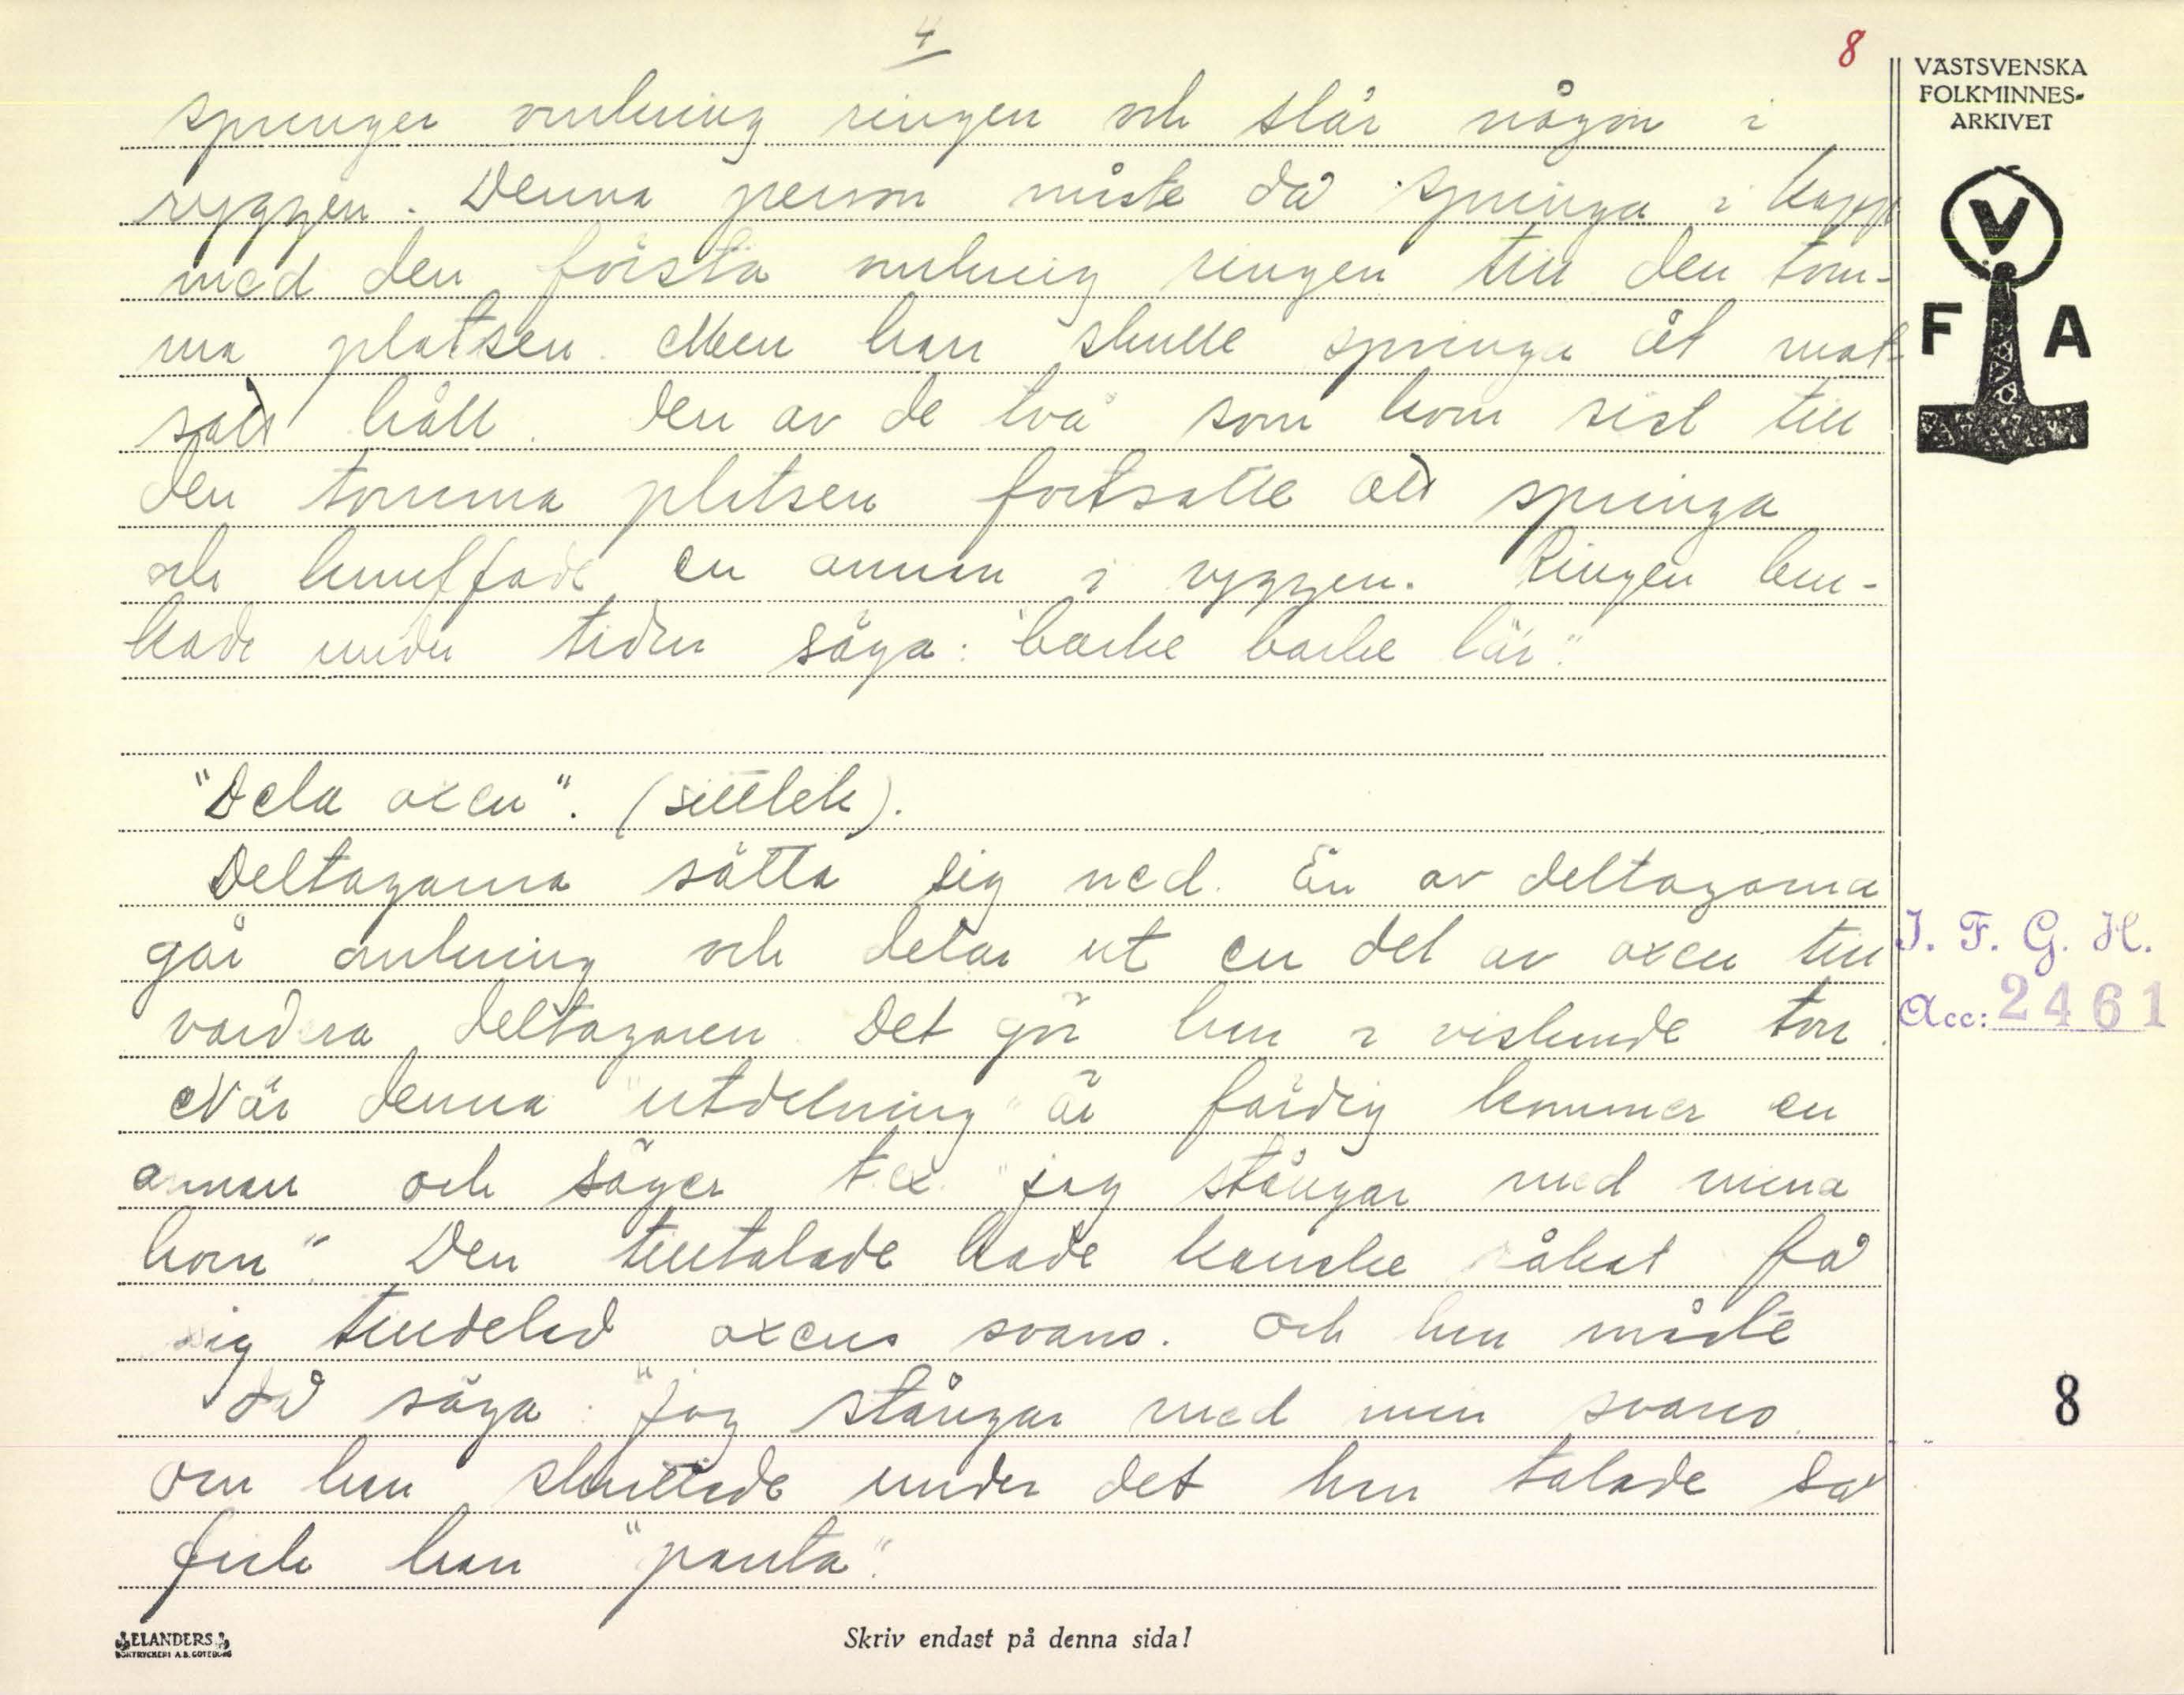 4
8
VÄSTSVENSKA
FOLKMINNES-
ARKIVET
V
F A
springer omkring ringen och slår någon i
ryggen. Denna person måste då springa i kapp
med den första omkring ringen till den tom-
ma platsen. Men han skulle springa åt mot-
satt håll. Den av de två som kom sist till
den tomma platsen fortsatte att springa
och knuffade en annan i ryggen. Ringen bru-
kade under tiden säga: "barke barke lär."
"Dela oxen". (sittlek).
Deltagarna sätta sig ned. En av deltagarna
går omkring och delar ut en del av oxen till
vardera deltagaren. Det gör han i viskande ton.
När denna "utdelning" är färdig kommer en
annan och säger t.ex. "jag stångar med mina
horn". Den tilltalade hade kanske råkat få
sig tilldelad oxens svans. Och han måste
då säga: "Jag stångar med min svans.
Om han skrattade under det han talade så
fick han "panta".
I. F. G. H.
Acc: 2461
8
ELANDERS
BOKTRYCKERI A.B. GÖTEBORG
Skriv endast på denna sida!